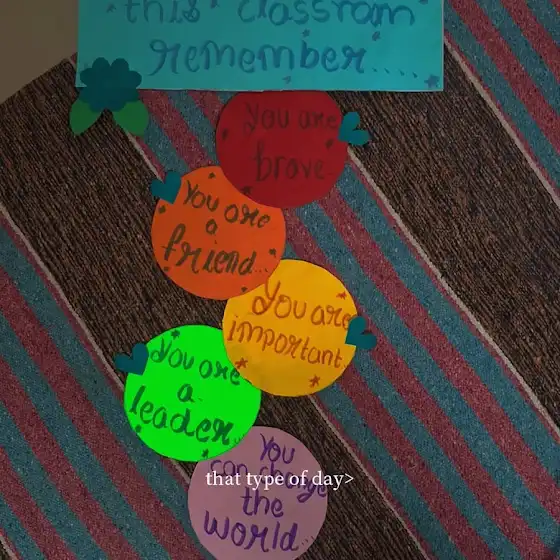 this classroom
remember.....
You are
brave..
You are
a
friend...
You are
important.
You are
a
leader..
You
can change
the
world...
that type of day>